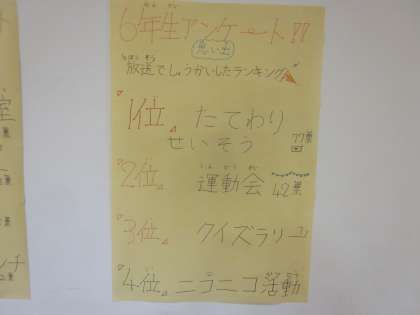 6年生アンケート!!
思い出
放送でしょうかいしたランキング
1位 たてわり
せいそう 77票
2位 運動会 42票
3位 クイズラリー
4位 ニコニコ活動
室
票
票
ンチ
票